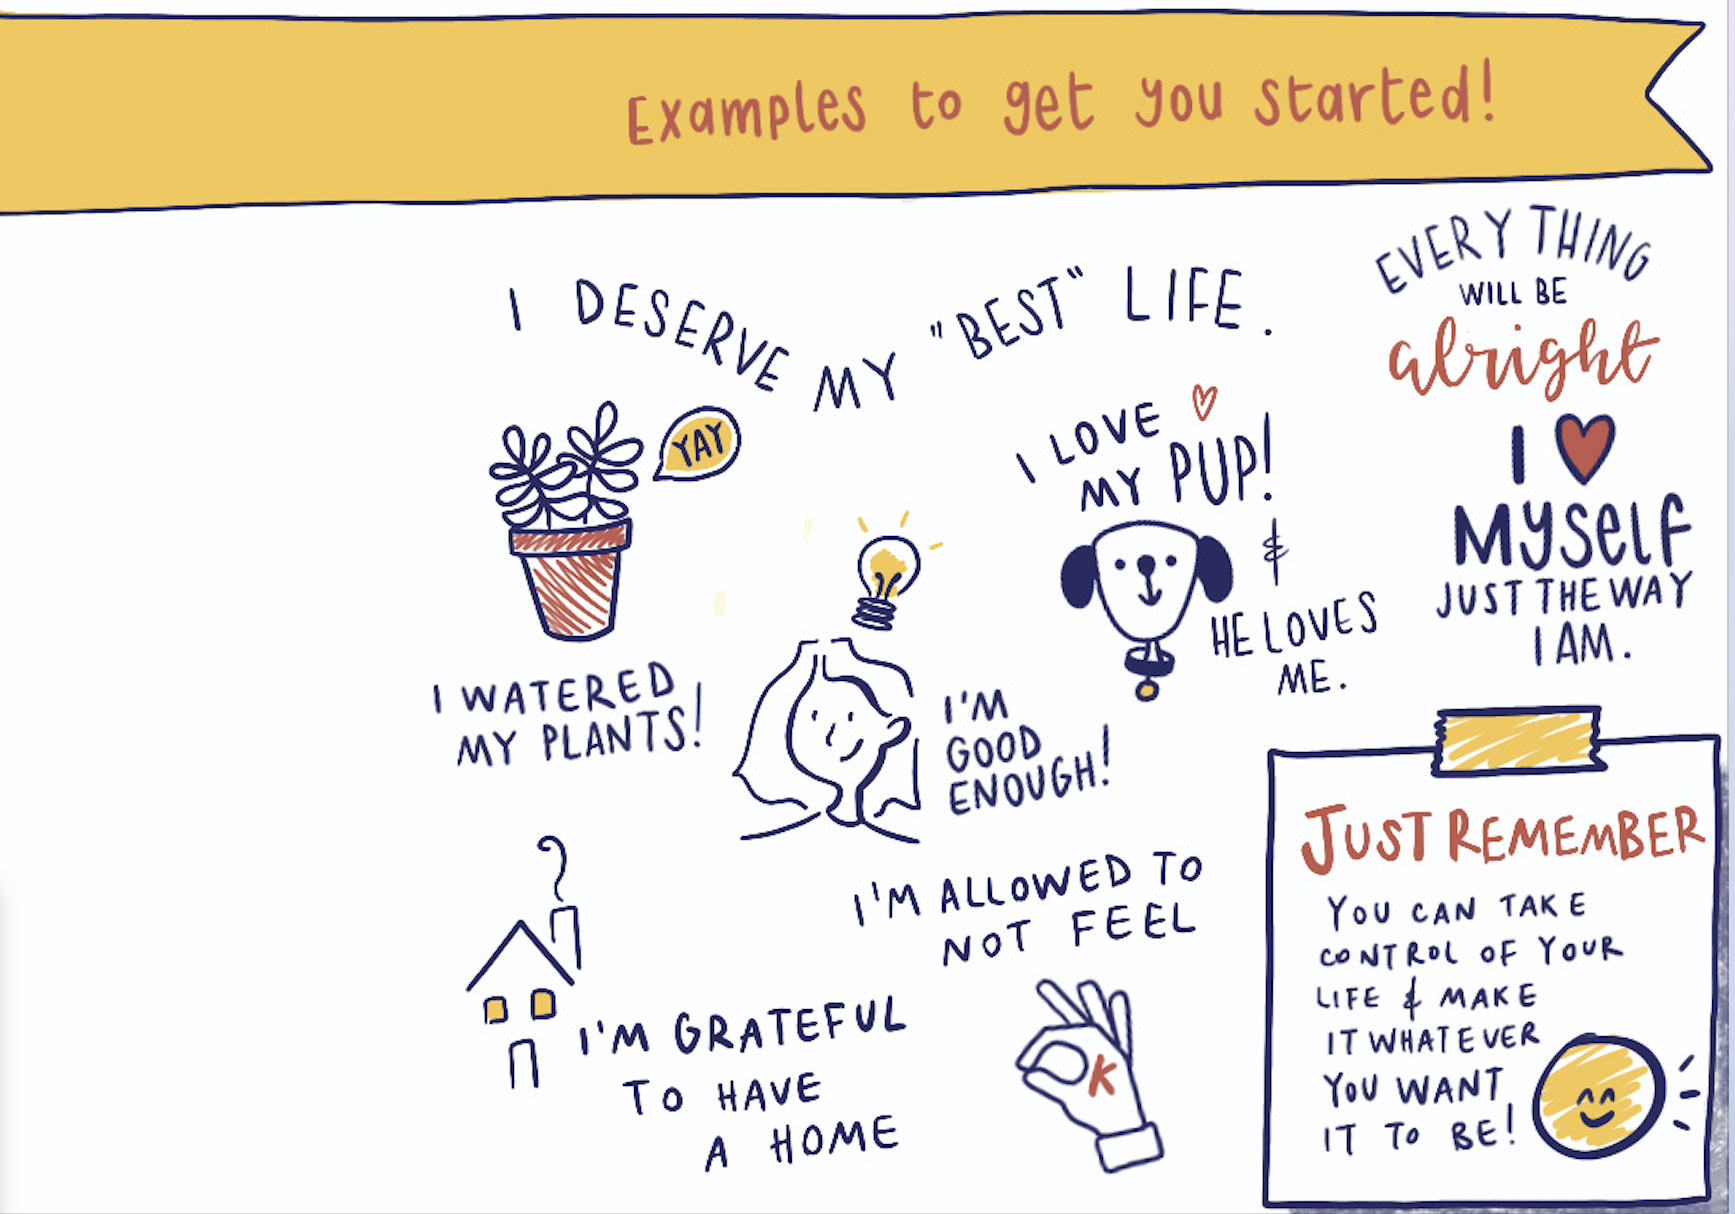 Examples to get you started!
I DESERVE MY "BEST" LIFE.
EVERYTHING
WILL BE
alright
YAY
I LOVE
MY PUP!
&
HE LOVES
ME.
I
MYSELF
JUST THE WAY
I AM.
I WATERED
MY PLANTS!
I'M
GOOD
ENOUGH!
I'M ALLOWED TO
NOT FEEL
K
I'M GRATEFUL
TO HAVE
A HOME
JUST REMEMBER
YOU CAN TAKE
CONTROL OF YOUR
LIFE & MAKE
IT WHATEVER
YOU WANT
IT TO BE!